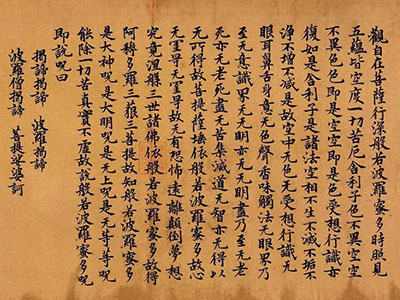 觀自在菩薩行深般若波羅蜜多時照見
五蘊皆空度一切苦厄舍利子色不異空空
不異色色即是空空即是色受想行識亦
復如是舍利子是諸法空相不生不滅不垢不
淨不增不減是故空中无色无受想行識无
眼耳鼻舌身意无色聲香味觸法无眼界乃
至无意識界无无明亦无无明盡乃至无老
死亦无老死盡无苦集滅道无智亦无得以
无所得故菩提薩埵依般若波羅蜜多故心
无罣㝵无罣㝵故无有恐怖遠離顛倒夢想
究竟涅槃三世諸佛依般若波羅蜜多故得
阿耨多羅三藐三菩提故知般若波羅蜜多
是大神呪是大明呪是无上呪是无等等呪
能除一切苦真實不虛故說般若波羅蜜多呪
即說呪曰
揭諦揭諦 波羅揭諦
波羅僧揭諦 菩提娑婆訶